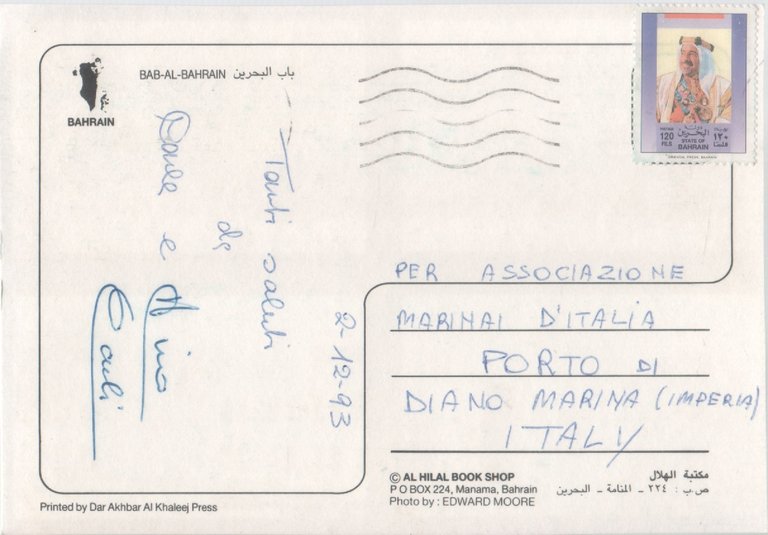 BAB-AL-BAHRAIN باب البحرين
BAHRAIN
Tanti saluti
da
Paola e Nino
Conti
2-12-93
120
FILS
STATE OF
BAHRAIN
١٢٠
فلسا
PER ASSOCIAZIONE
MARINAI D'ITALIA
PORTO DI
DIANO MARINA (IMPERIA)
ITALY
© AL HILAL BOOK SHOP
P O BOX 224, Manama, Bahrain
Photo by : EDWARD MOORE
مكتبة الهلال
ص.ب : ٢٢٤ - المنامة - البحرين
Printed by Dar Akhbar Al Khaleej Press